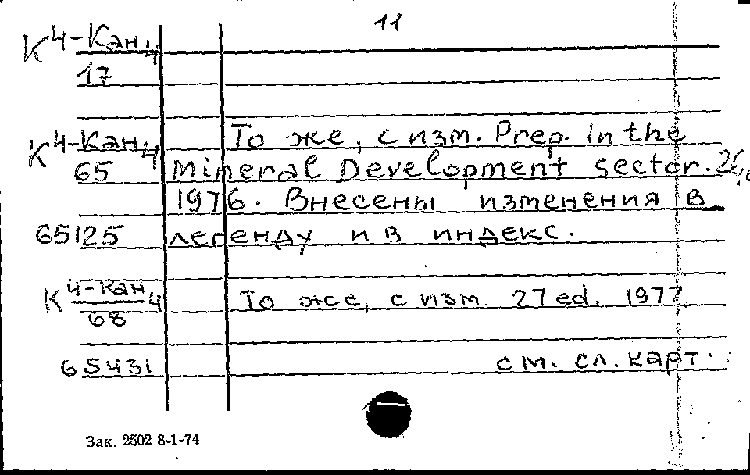 11
К 4-Кан,4
17
К 4-Кан,4 То же, с изм. Prep. in the
65 Mineral Development sector.
1976. Внесены изменения в
65125 легенду и в индекс.
К 4-Кан,4 То же, с изм 27 ed. 1977
68
65431 см. сл. карт.
Зак. 2502 8-1-74